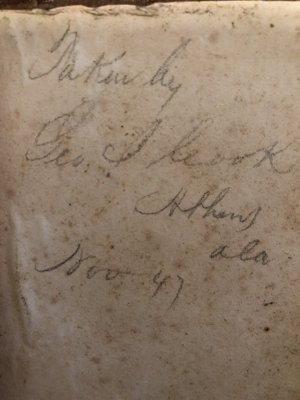 Taken by
Geo. S Cook
Athens
Ala
Nov 47